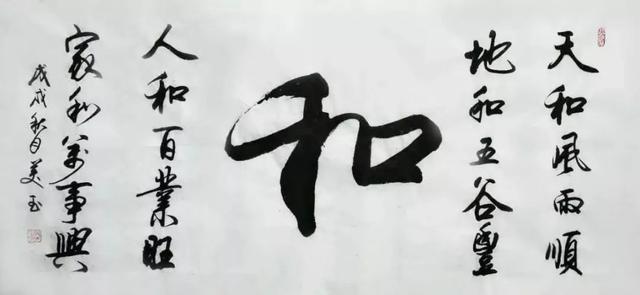 天和風雨順
地和五谷豐
和
人和百業旺
家和萬事興
戊戌秋月美玉